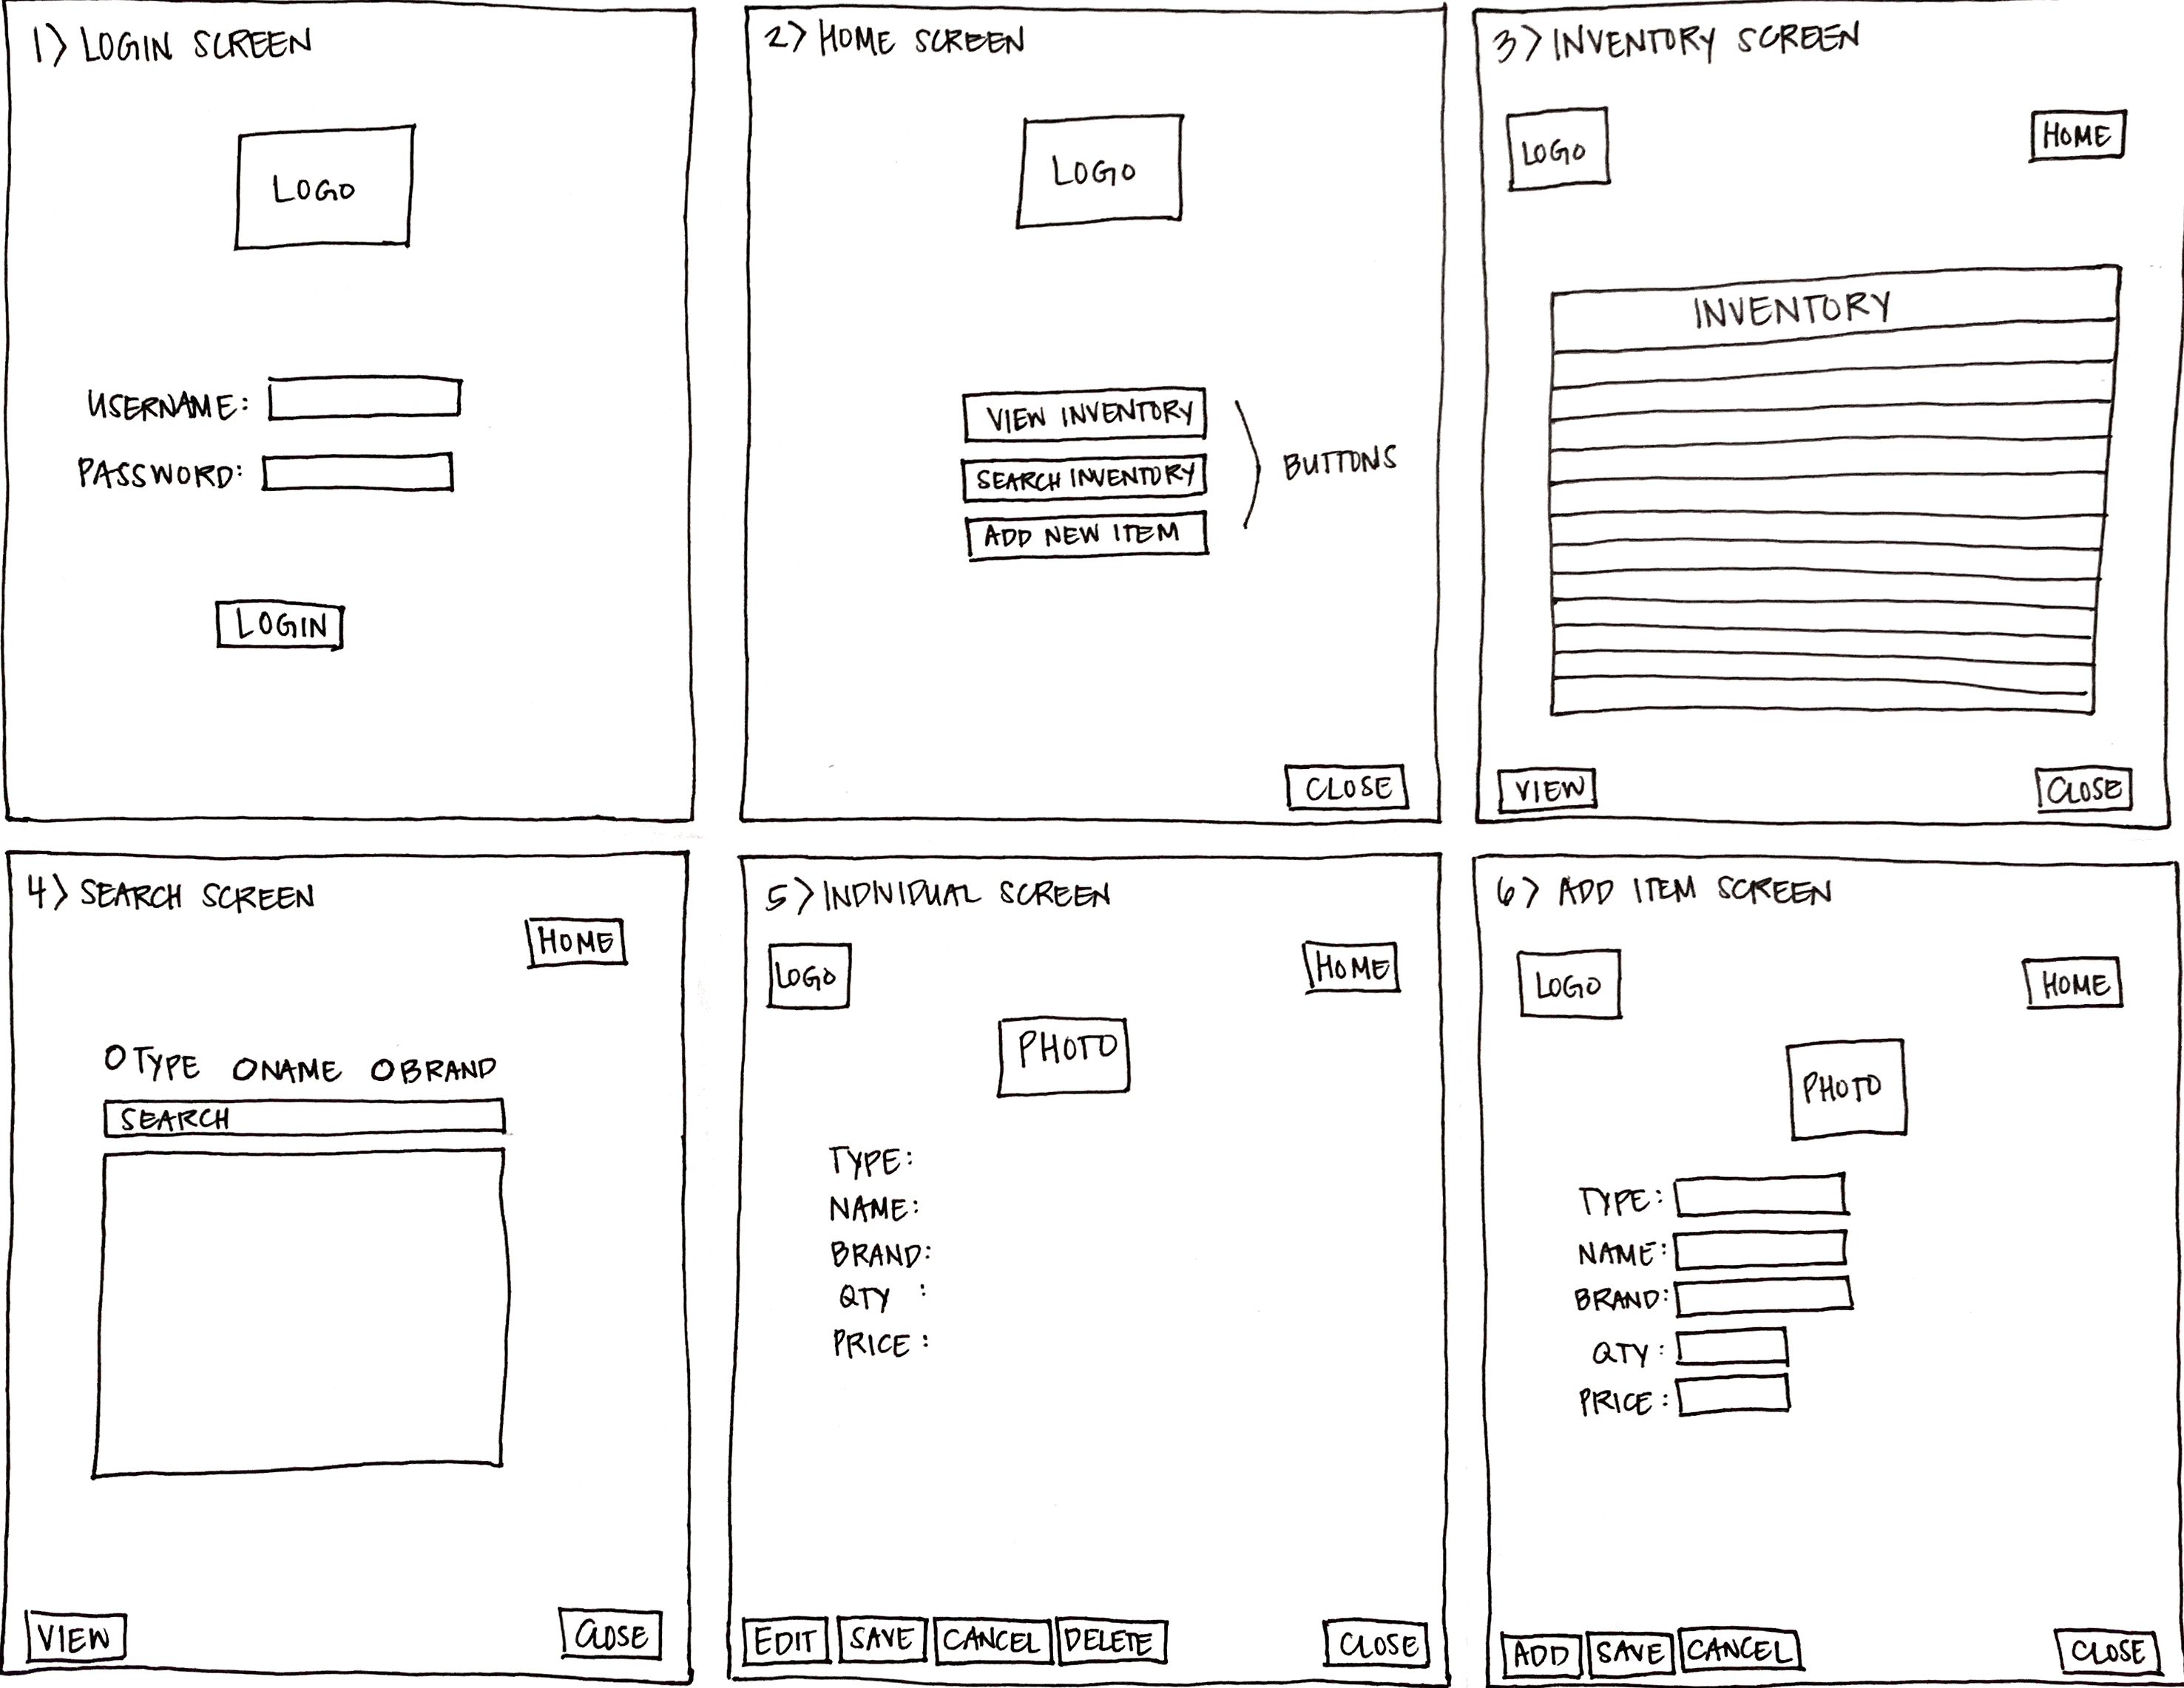 1> LOGIN SCREEN
LOGO
USERNAME:
PASSWORD:
LOGIN
2> HOME SCREEN
LOGO
VIEW INVENTORY
SEARCH INVENTORY
ADD NEW ITEM
BUTTONS
CLOSE
3> INVENTORY SCREEN
LOGO
HOME
INVENTORY
VIEW
CLOSE
4> SEARCH SCREEN
HOME
O TYPE O NAME O BRAND
SEARCH
VIEW
CLOSE
5> INDIVIDUAL SCREEN
LOGO
HOME
PHOTO
TYPE:
NAME:
BRAND:
QTY :
PRICE :
EDIT SAVE CANCEL DELETE CLOSE
6> ADD ITEM SCREEN
LOGO
HOME
PHOTO
TYPE:
NAME:
BRAND:
QTY :
PRICE :
ADD SAVE CANCEL CLOSE